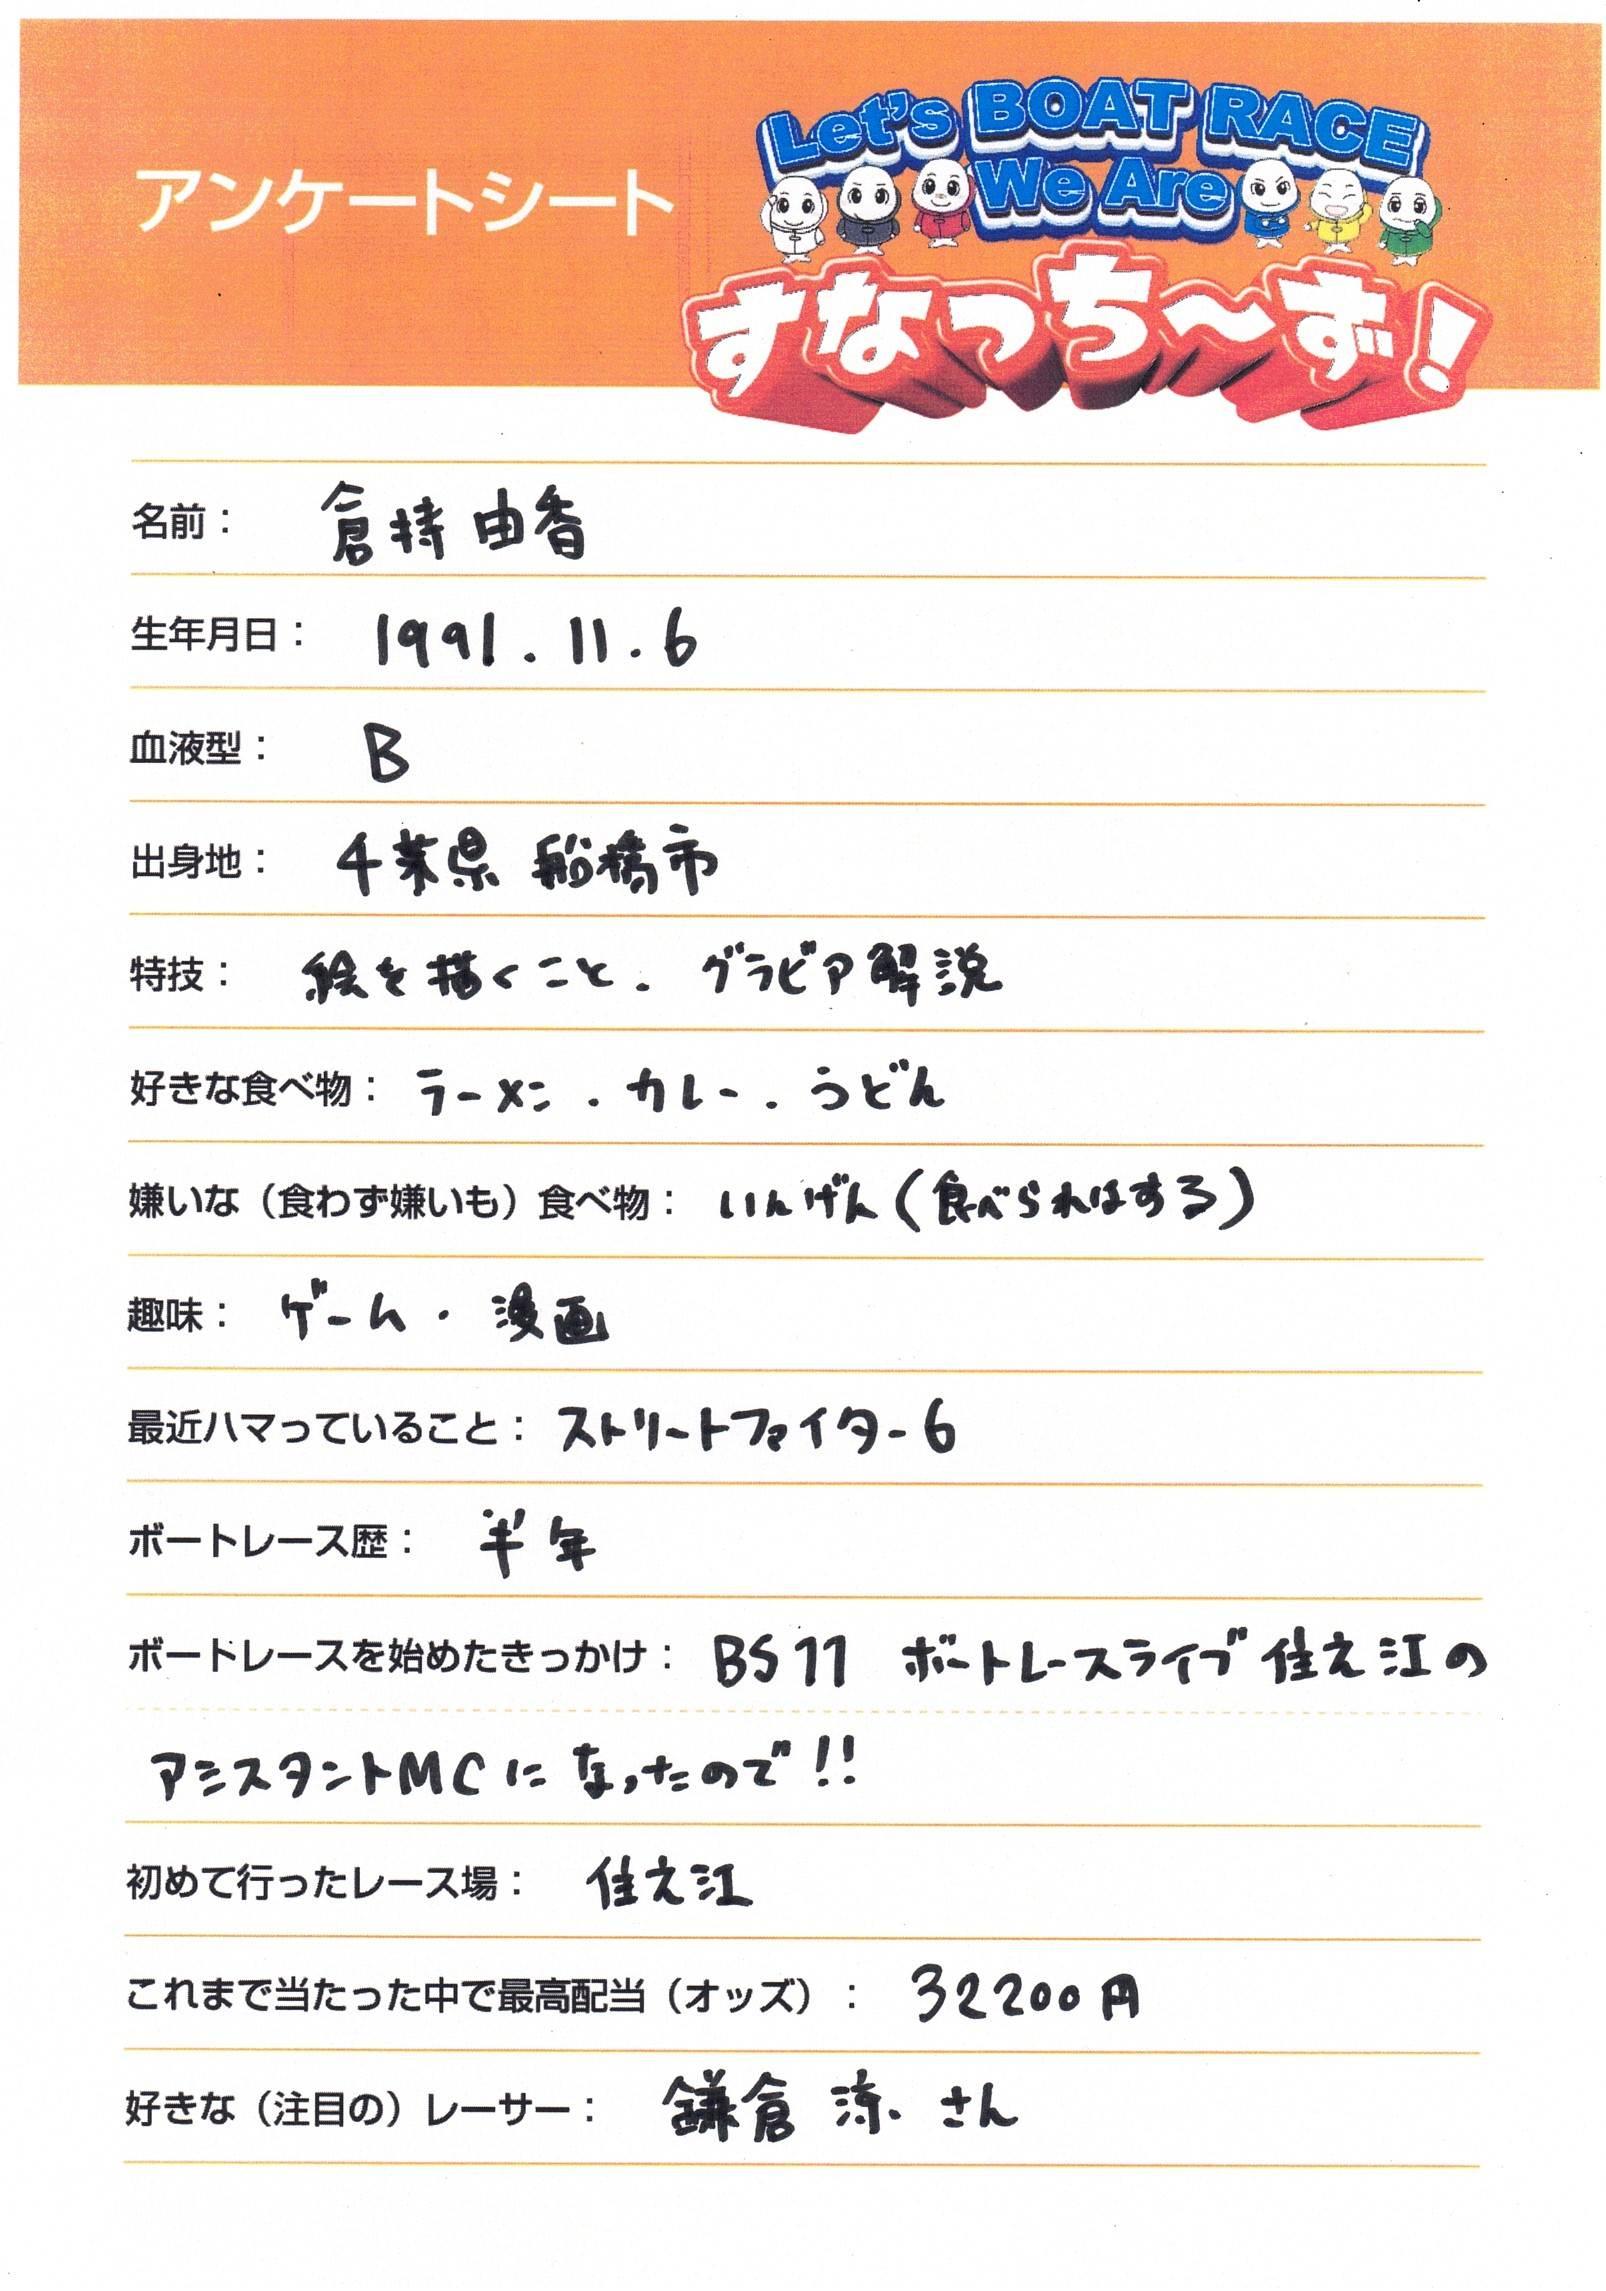 アンケートシート
Let's BOAT RACE
We Are
すなっち～ず！
名前： 倉持 由香
生年月日： 1991.11.6
血液型： B
出身地： 千葉県 船橋市
特技： 絵を描くこと. グラビア解説
好きな食べ物： ラーメン.カレー.うどん
嫌いな（食わず嫌いも）食べ物： いんげん（食べられはする）
趣味： ゲーム・漫画
最近ハマっていること： ストリートファイター6
ボートレース歴： 半年
ボートレースを始めたきっかけ： BS11 ボートレースライブ 住之江の
アシスタントMCになったので!!
初めて行ったレース場： 住之江
これまで当たった中で最高配当（オッズ）： 32200円
好きな（注目の）レーサー： 鎌倉 涼 さん